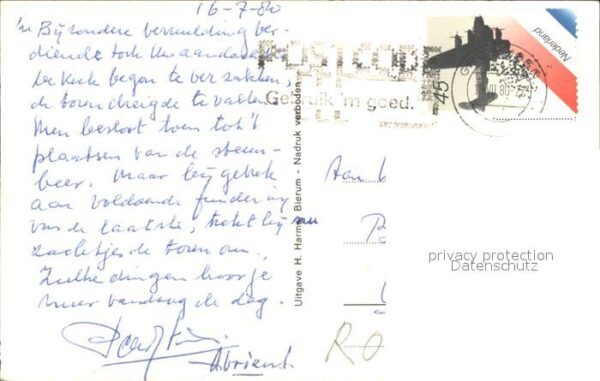 16-7-80
'n Bijzondere vermelding ver-
diende ook Uw aandacht
de kerk began te verzakken,
de toren dreigde te vallen.
Men besloot toen tot 't
plaatsen van de steun-
beer. Maar bij gebrek
aan voldoende fundering
van de laatste, trekt hij nu
zachtjes de toren om.
Zulke dingen hoor je
meer vandaag de dag.
POSTCODE
Gebruik 'm goed.
Nederland
45
VII.80
Uitgave H. Harms, Bierum - Nadruk verboden
Aan
privacy protection
Datenschutz
RO